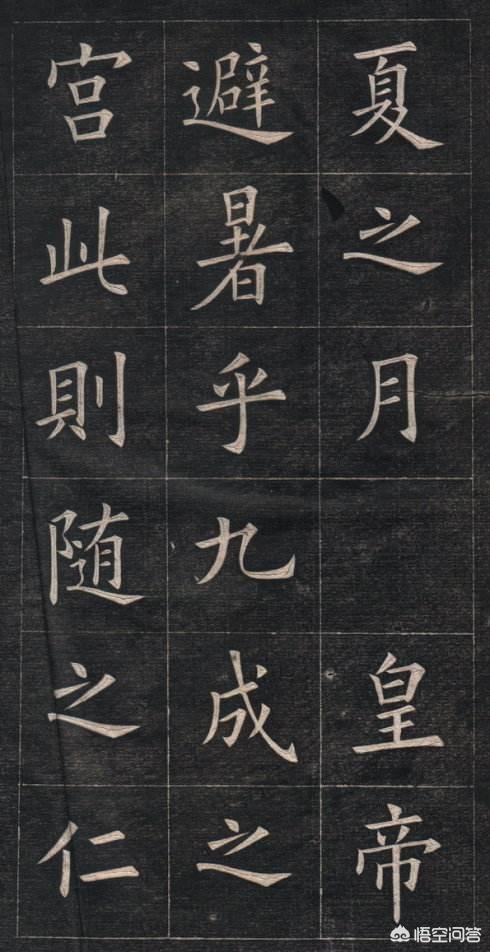 夏之月 皇帝
避暑乎九成之
宫此則随之仁
悟空问答